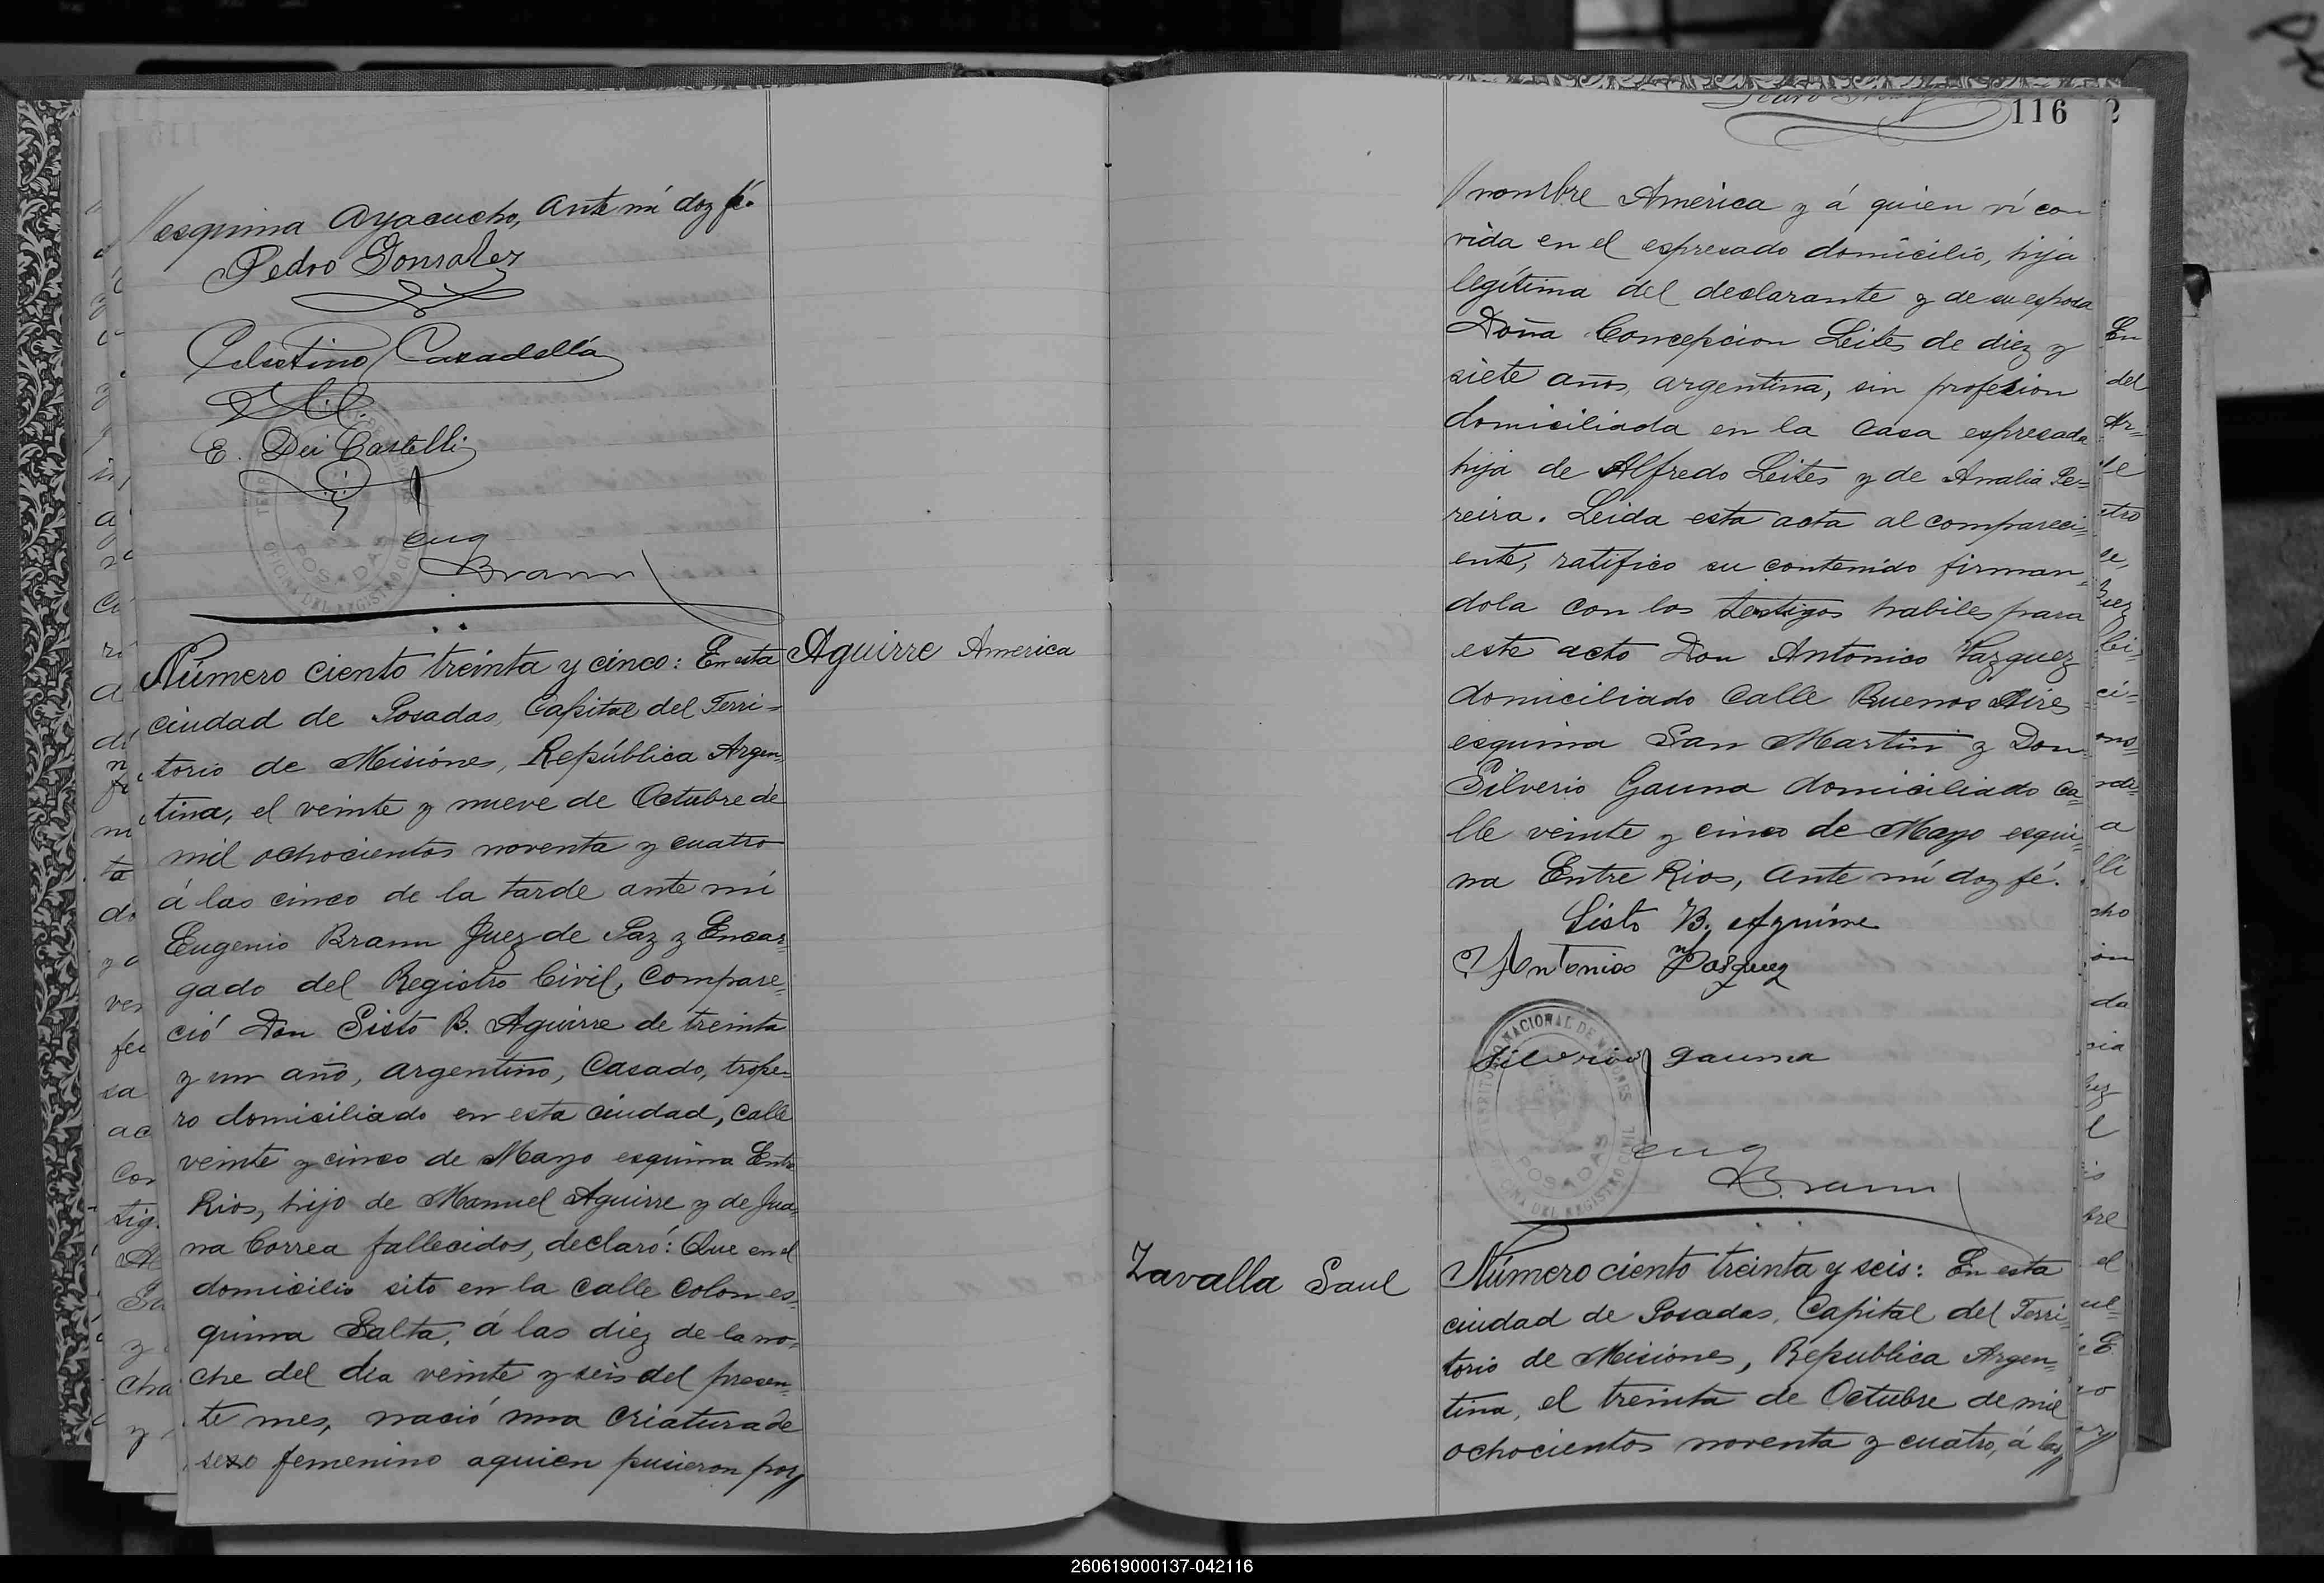 //esquina Ayacucho, Ante mí doy fé.
Pedro Gonsalez
Celestino Casadellá
E. Dei Castelli
POSADAS
OFICINA DEL REGISTRO CIVIL
Eug
Brann
Número ciento treinta y cinco: En esta
Aguirre America
ciudad de Posadas, Capital del Terri=
torio de Misiónes, República Argen=
tina, el veinte y nueve de Octubre de
mil ochocientos noventa y cuatro
á las cinco de la tarde ante mí
Eugenio Brann Juez de Paz y Encar=
gado del Registro Civil, compare=
ció Don Sisto B. Aguirre de treinta
y un año, argentino, Casado, trope=
ro domiciliado en esta ciudad, calle
veinte y cinco de Mayo esquina Entre
Rios, hijo de Manuel Aguirre y de Jua=
na Correa fallecidos, declaró: Que en el
domicilio sito en la calle Colon es=
quina Salta, á las diez de la no=
che del dia veinte y seis del presen=
te mes, nació una criatura de
sexo femenino a quien pusieron por//
116
//nombre America y á quien ví con
vida en el espresado domicilio, hija
legítima del declarante y de su esposa
Doña Concepcion Leites de diez y
siete años, argentina, sin profesion
domiciliada en la casa espresada
hija de Alfredo Leites y de Amalia Pe=
reira. Leida esta acta al compareci=
ente, ratifico su contenido firman=
dola con los testigos habiles para
este acto Don Antonico Vazquez
domiciliado Calle Buenos Aires
esquina San Martin y Don
Silverio Gauna domiciliado ca=
lle veinte y cinco de Mayo esqui=
na Entre Rios, Ante mí doy fé.
Sisto B. Aguirre
Antonico Vasquez
Silverio Gauna
TERRITORIO NACIONAL DE MISIONES
POSADAS
OFICINA DEL REGISTRO CIVIL
Eug
Brann
Zavalla Saul
Número ciento treinta y seis: En esta
ciudad de Posadas, Capital del Terri=
torio de Misiones, Republica Argen=
tina, el treinta de Octubre de mil
ochocientos noventa y cuatro, á las//
260619000137-042116